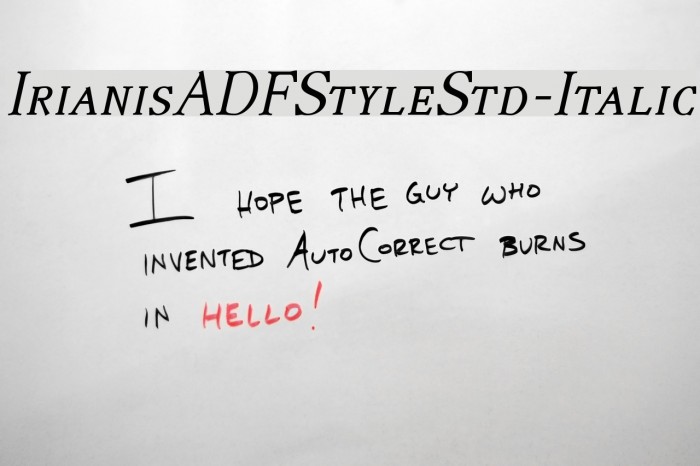 IrianisADFStyleStd-Italic
I HOPE THE GUY WHO
INVENTED AUTOCORRECT BURNS
IN HELLO!